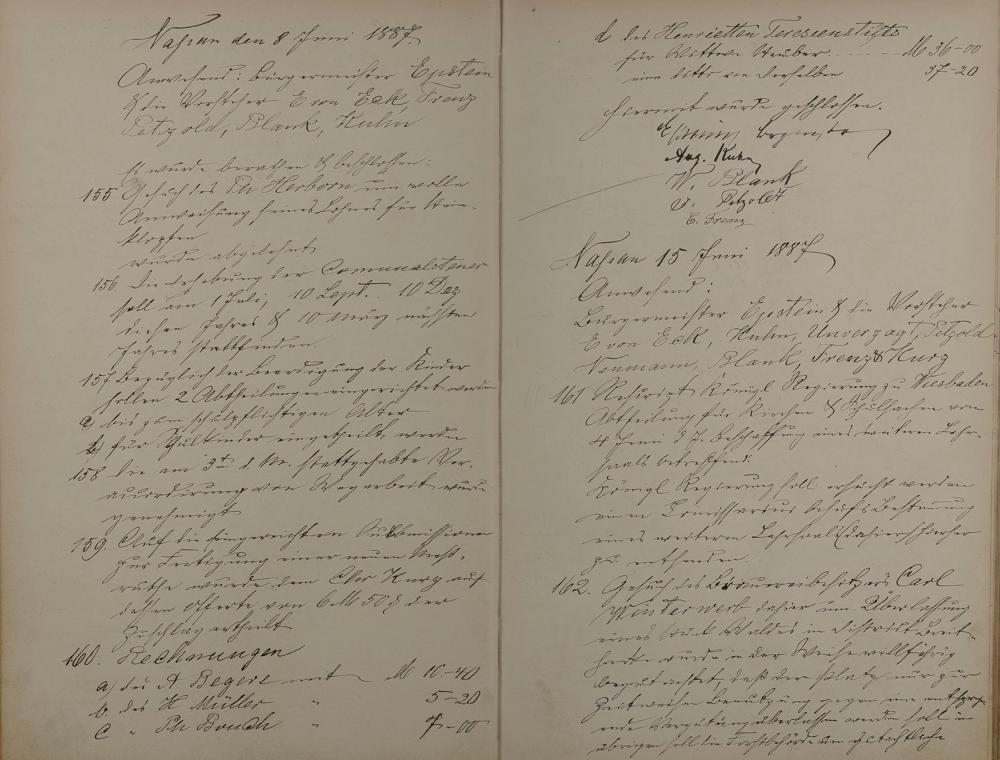 Nassau den 8 Juni 1887.
Anwesend: Bürgermeister Epstein
& die Vorsteher E von Eck, Frenz
Petzold, Blank, Kuhn
Es wurde berathen & beschlossen:
155 Gesuch des Ph Herborn um volle
Anweisung seines Lohnes für Stein-
klopfen
wurde abgelehnt
156 Die Erhebung der Communalsteuer
soll am 1 Juli, 10 Sept. 10 Dez
diesen Jahres & 10 März nächsten
Jahres stattfinden.
157 Bezüglich der Beerdigung der Kinder
sollen 2 Abtheilungen eingerichtet werden
a bis zum schulpflichtigen Alter
b für Schulkinder eingetheilt werden
158 Die am 3ten d. Mts. stattgehabte Ver-
von Wegarbeit wurde
genehmigt
159. Auf die eingereichten Submissionen
zur Fertigung einer neuen Meß-
ruthe wurde dem Chr Kurz auf
dessen Offerte von 6 M 50 ₰ der
Zuschlag ertheilt
160. Rechnungen
a) des A Begere mit M 10-40
b. des H Müller " 5-20
c " Ph Bruch " 7-00
d des Henrietten Theresienstifts
für Wittwe Steuber M 36-00
eine ditto von derselben 37-20
Hiermit wurde geschlossen.
Epstein Bürgermstr
Aug. Kuhn
W. Blank
Petzoldt
E. Frenz
Nassau 15 Juni 1887
Anwesend:
Bürgermeister Epstein & die Vorsteher
E von Eck, Kuhn, Unverzagt, Petzold
Neumann, Blank, Frenz & Kurz
161 Rescript Königl Regierung zu Wiesbaden
Abtheilung für Kirchen & Schulsachen vom
4 Juni d J. Beschaffung eines weiteren Lehr-
saals betreffend.
Königl Regierung soll ersucht werden
einen Comissarius behufs Bestimmung
eines weiteren Lehrsaals (dahier) hierher
zu entsenden.
162. Gesuch des Brauereibesitzers Carl
Winterwerb dahier um Überlassung
eines Stück Waldes im District Breit-
hecke wurde in der Weise willfährig
begutachtet, daß der Platz nur zur
zeitweisen Benutzung gegen eine entspreche
ende Vergütung überlassen werden soll im
übrigen soll die Forstbehörde um gutachtliche